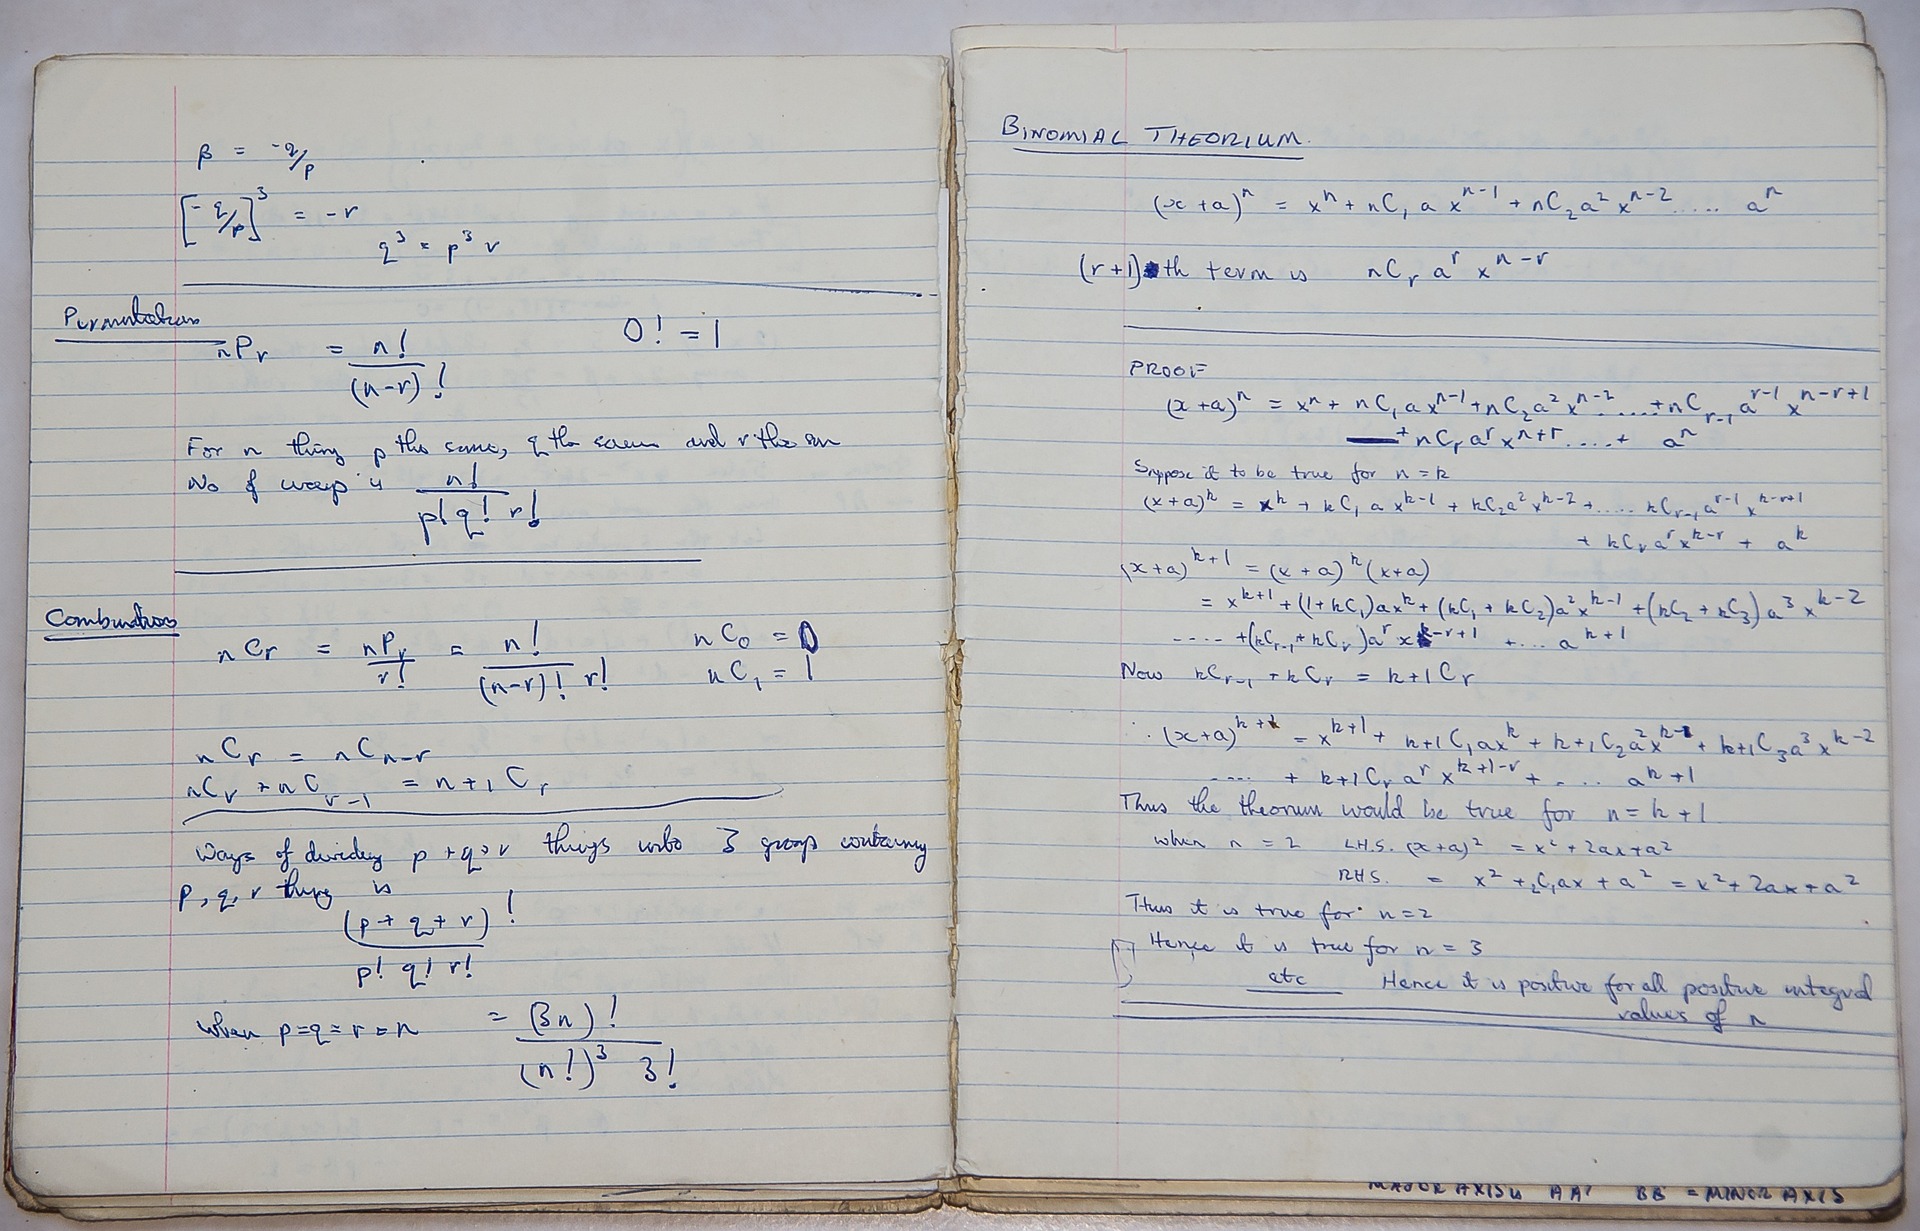 β = -q/p
[-q/p]³ = -r
q³ = p³ r
Permutations
nPr = n! / (n-r)!
0! = 1
For n thing p the same, q the same and r the sm
No of ways is n! / p! q! r!
Combinations
nCr = nPr / r! = n! / (n-r)! r!
nC₀ = 0
nC₁ = 1
nCr = nCn-r
nCr + nCr-1 = n+1Cr
Ways of dividing p+q+r things into 3 group containing
p, q, r thing is
(p+q+r)! / p! q! r!
when p=q=r=n = (3n)! / (n!)³ 3!
BINOMIAL THEORIUM.
(x+a)ⁿ = xⁿ + nC₁ a xⁿ⁻¹ + nC₂ a² xⁿ⁻² ..... aⁿ
(r+1)th term is nCr aʳ xⁿ⁻ʳ
PROOF
(x+a)ⁿ = xⁿ + nC₁ a xⁿ⁻¹ + nC₂ a² xⁿ⁻² ..... + nCr-1 aʳ⁻¹ xⁿ⁻ʳ⁺¹
+ nCr aʳ xⁿ⁺ʳ ....+ aⁿ
Suppose it to be true for n=k
(x+a)ᵏ = xᵏ + kC₁ a xᵏ⁻¹ + kC₂ a² xᵏ⁻² + ..... kCr-1 aʳ⁻¹ xᵏ⁻ʳ⁺¹
+ kCr aʳ xᵏ⁻ʳ + aᵏ
(x+a)ᵏ⁺¹ = (x+a)ᵏ (x+a)
= xᵏ⁺¹ + (1+kC₁)axᵏ + (kC₁ + kC₂)a² xᵏ⁻¹ + (kC₂ + kC₃) a³ xᵏ⁻²
.... + (kCr-1 + kCr)aʳ xᵏ⁻ʳ⁺¹ + ... aᵏ⁺¹
Now kCr-1 + kCr = k+1Cr
∴ (x+a)ᵏ⁺¹ = xᵏ⁺¹ + k+1C₁axᵏ + k+1C₂a²xᵏ⁻¹ + k+1C₃a³xᵏ⁻²
.... + k+1Cr aʳ xᵏ⁺¹⁻ʳ + .... aᵏ⁺¹
Thus the theorum would be true for n=k+1
when n = 2 L.H.S. (x+a)² = x² + 2ax + a²
RHS. = x² + ₂C₁ax + a² = x² + 2ax + a²
Thus it is true for n=2
Hence it is true for n = 3
etc Hence it is positive for all positive integral
values of n
MAJOR AXIS is AA' BB' = MINOR AXIS